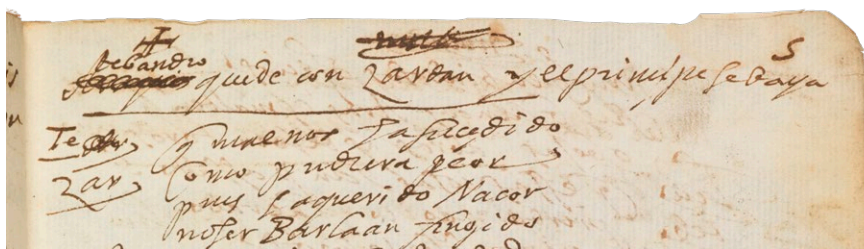 5
Tebandro
quede con Zardan y el principe se baya
Te q mal nos ha sucedido
Zar Como pudiera peor
pues ha querido Nacor
no ser Barlaan fingido